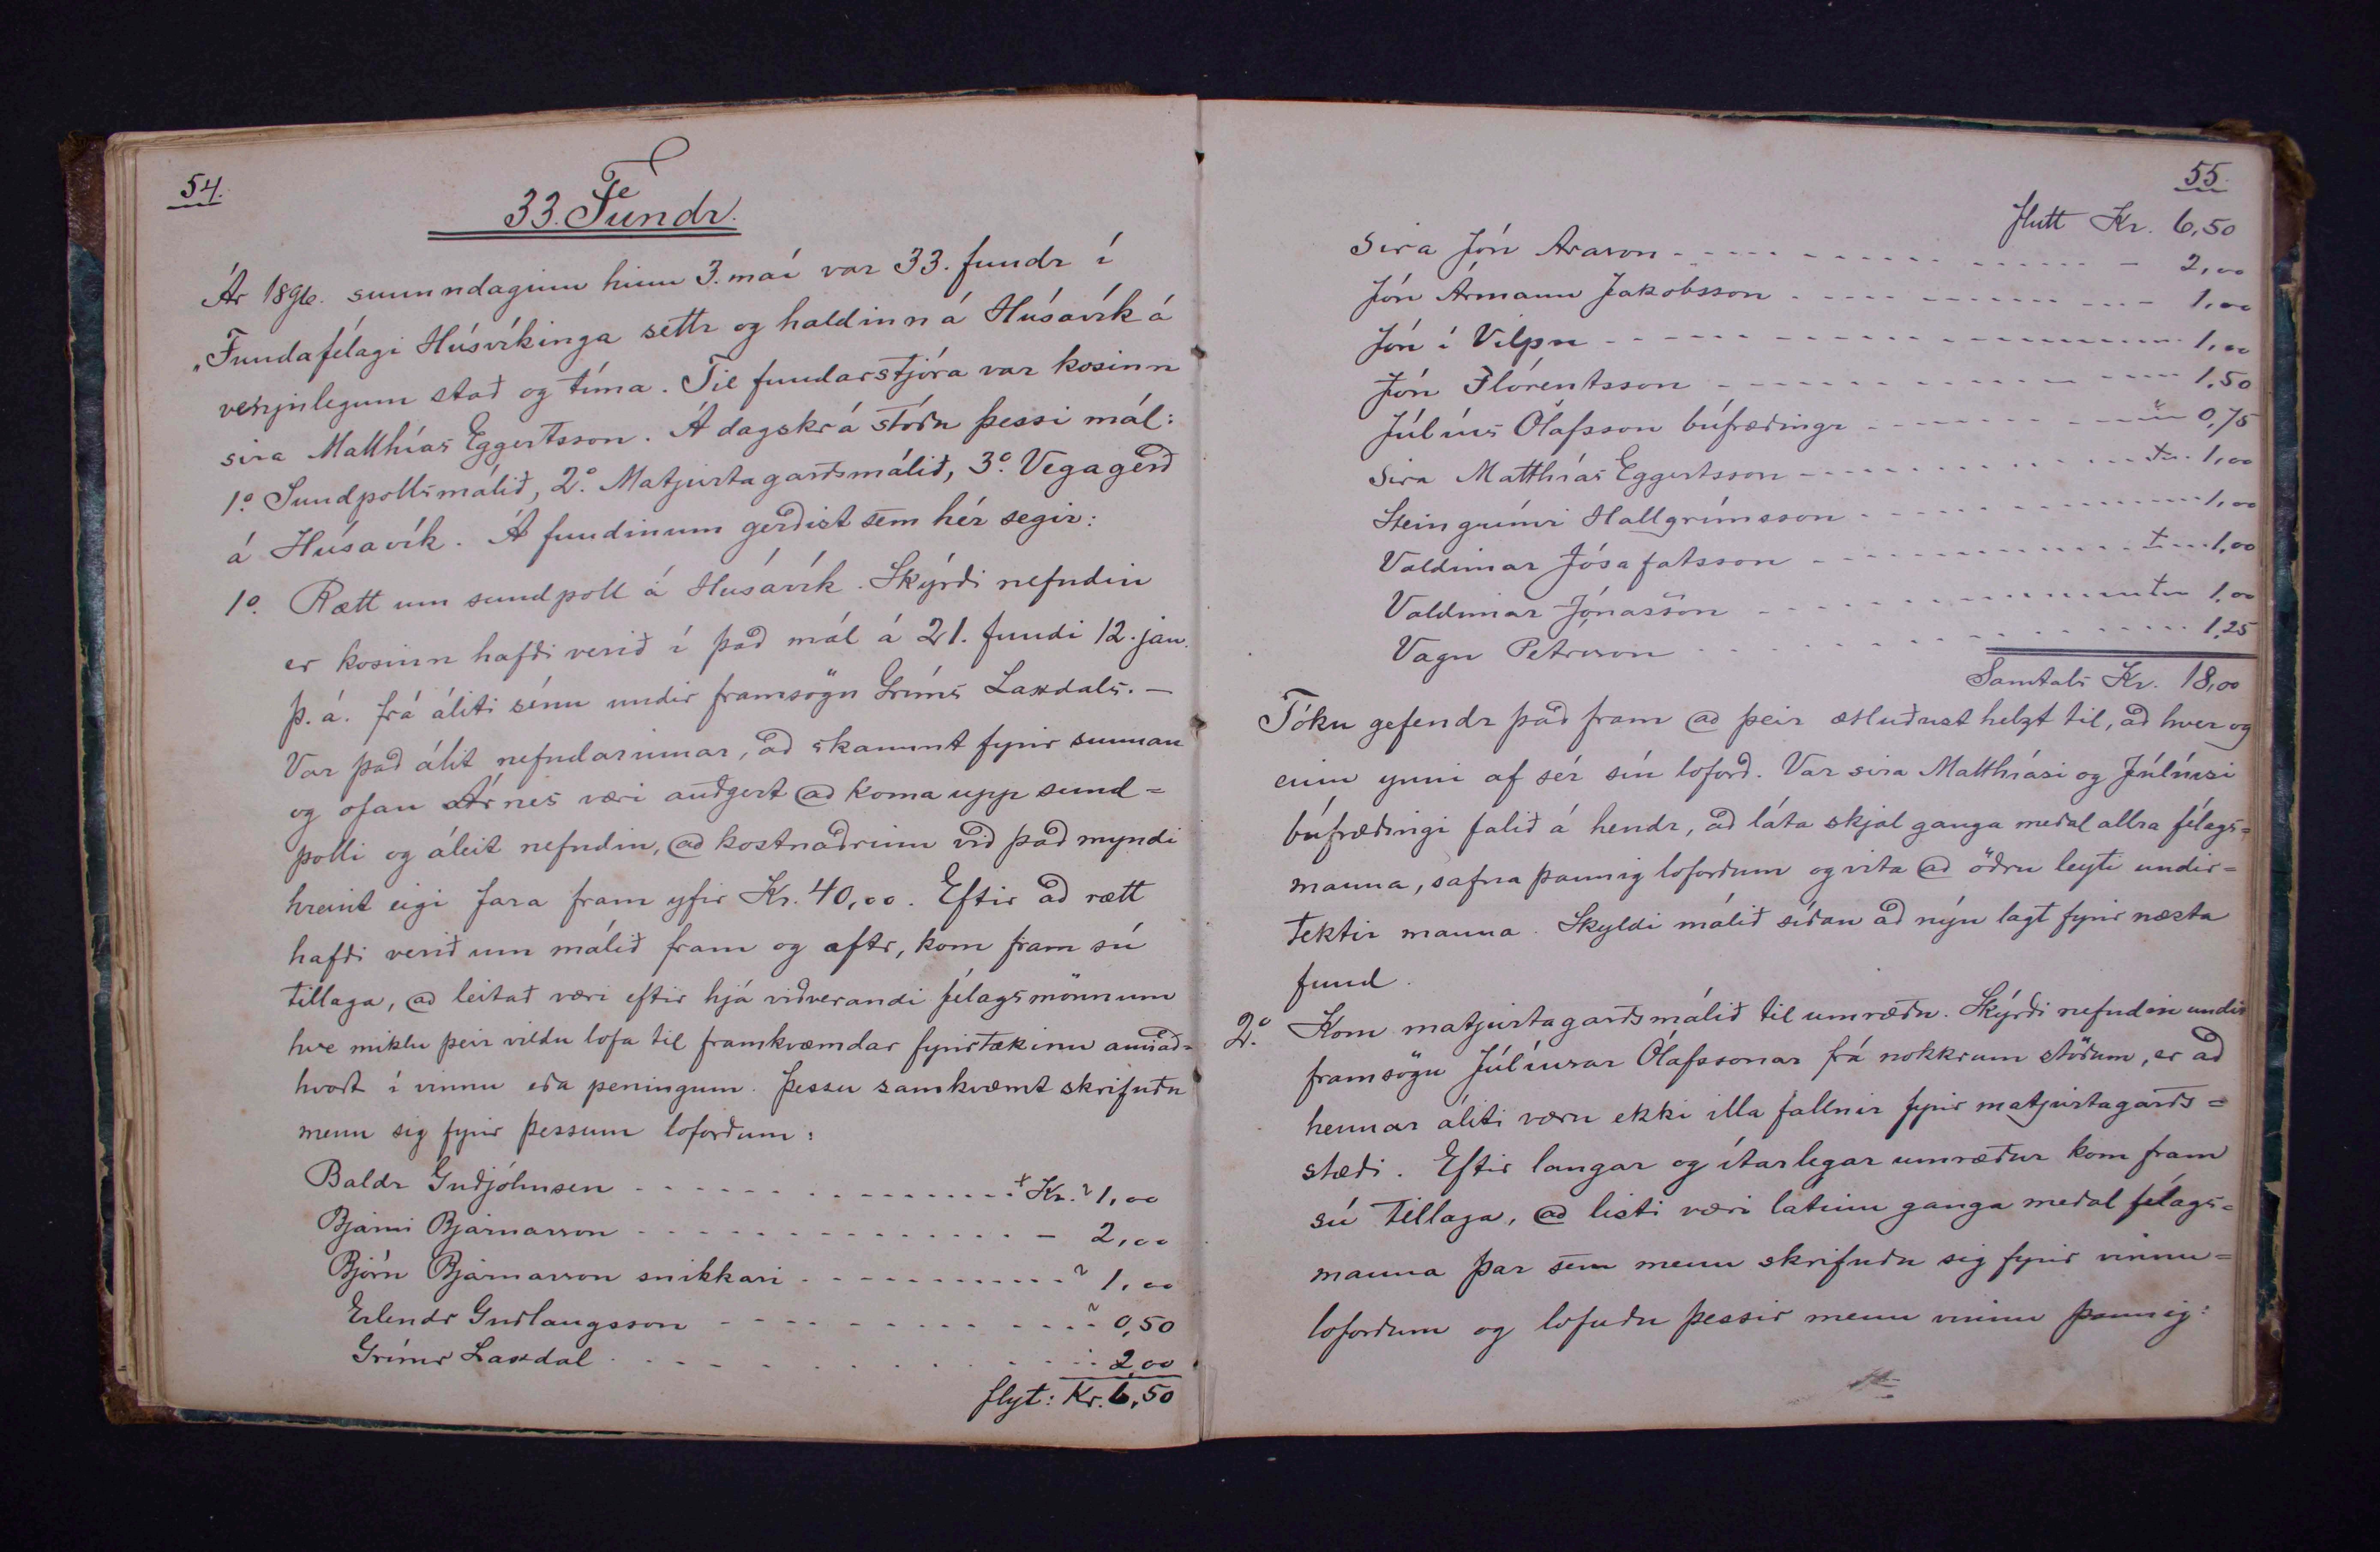 54.
33. Fundr.
Ár 1896. sunnudaginn hinn 3. maí var 33. fundr í
„Fundafélagi Húsvíkinga settr og haldinn á Húsavík á
venjulegum stað og tíma. Til fundarstjóra var kosinn
síra Matthías Eggertsson. Á dagskrá stóðu þessi mál:
1.º Sundpollsmálið, 2.º Matjurtagarðsmálið, 3.º Vegagerð
á Húsavík. Á fundinum gerðist sem hér segir:
1.º Rætt um sundpoll á Húsavík. Skýrði nefndin
er kosinn hafði verið í það mál á 21. fundi 12. jan.
þ. á. frá áliti sínu undir framsögn Gríms Laxdals. —
Var það álit nefndarinnar, að skammt fyrir sunnan
og ofan Árnes væri auðgert að koma upp sund=
polli og áleit nefndin, að kostnaðrinn við það myndi
hreint eigi fara fram yfir Kr. 40,00. Eftir að rætt
hafði verið um málið fram og aftr, kom fram sú
tillaga, að leitað væri eftir hjá viðverandi félagsmönnum
hve miklu þeir vildu lofa til framkvæmdar fyrirtækinu annað=
hvort í vinnu eða peningum. Þessu samkvæmt skrifuðu
menn sig fyrir þessum loforðum:
Baldr Guðjohnsen - - - - Kr. 1,00
Bjarni Bjarnarson - - - - 2,00
Björn Bjarnarson snikkari - - - - 1,00
Erlendr Guðlaugsson - - - - 0,50
Grímr Laxdal - - - - 2,00
flyt: Kr. 6,50
55.
flutt Kr. 6,50
Síra Jón Arason - - - - 2,00
Jón Ármann Jakobsson - - - - 1,00
Jón í Vilpu - - - - 1,00
Jón Flórentsson - - - - 1,50
Júlíus Ólafsson búfræðingr - - - - 0,75
Síra Matthías Eggertsson - - - - 1,00
Steingrímr Hallgrímsson - - - - 1,00
Valdimar Jósafatsson - - - - 1,00
Valdimar Jónasson - - - - 1,00
Vagn Petrsson - - - - 1,25
Samtals Kr. 18,00
Tóku gefendr það fram að þeir ætluðust helzt til, að hver og
einn ynni af sér sín loforð. Var síra Matthíasi og Júlíusi
búfræðingi falið á hendr, að láta skjal ganga meðal allra félags=
manna, safna þannig loforðum og vita að öðru leyti undir=
tektir manna. Skyldi málið síðan að nýju lagt fyrir næsta
fund.
2.º Kom matjurtagarðsmálið til umræðu. Skýrði nefndin undir
framsögn Júlíusar Ólafssonar frá nokkrum stöðum, er að
hennar áliti væru ekki illa fallnir fyrir matjurtagarðs=
stæði. Eftir langar og ítarlegar umræður kom fram
sú tillaga, að listi væri látinn ganga meðal félags=
manna þar sem menn skrifuðu sig fyrir vinnu=
loforðum og lofuðu þessir menn vinnu þannig: